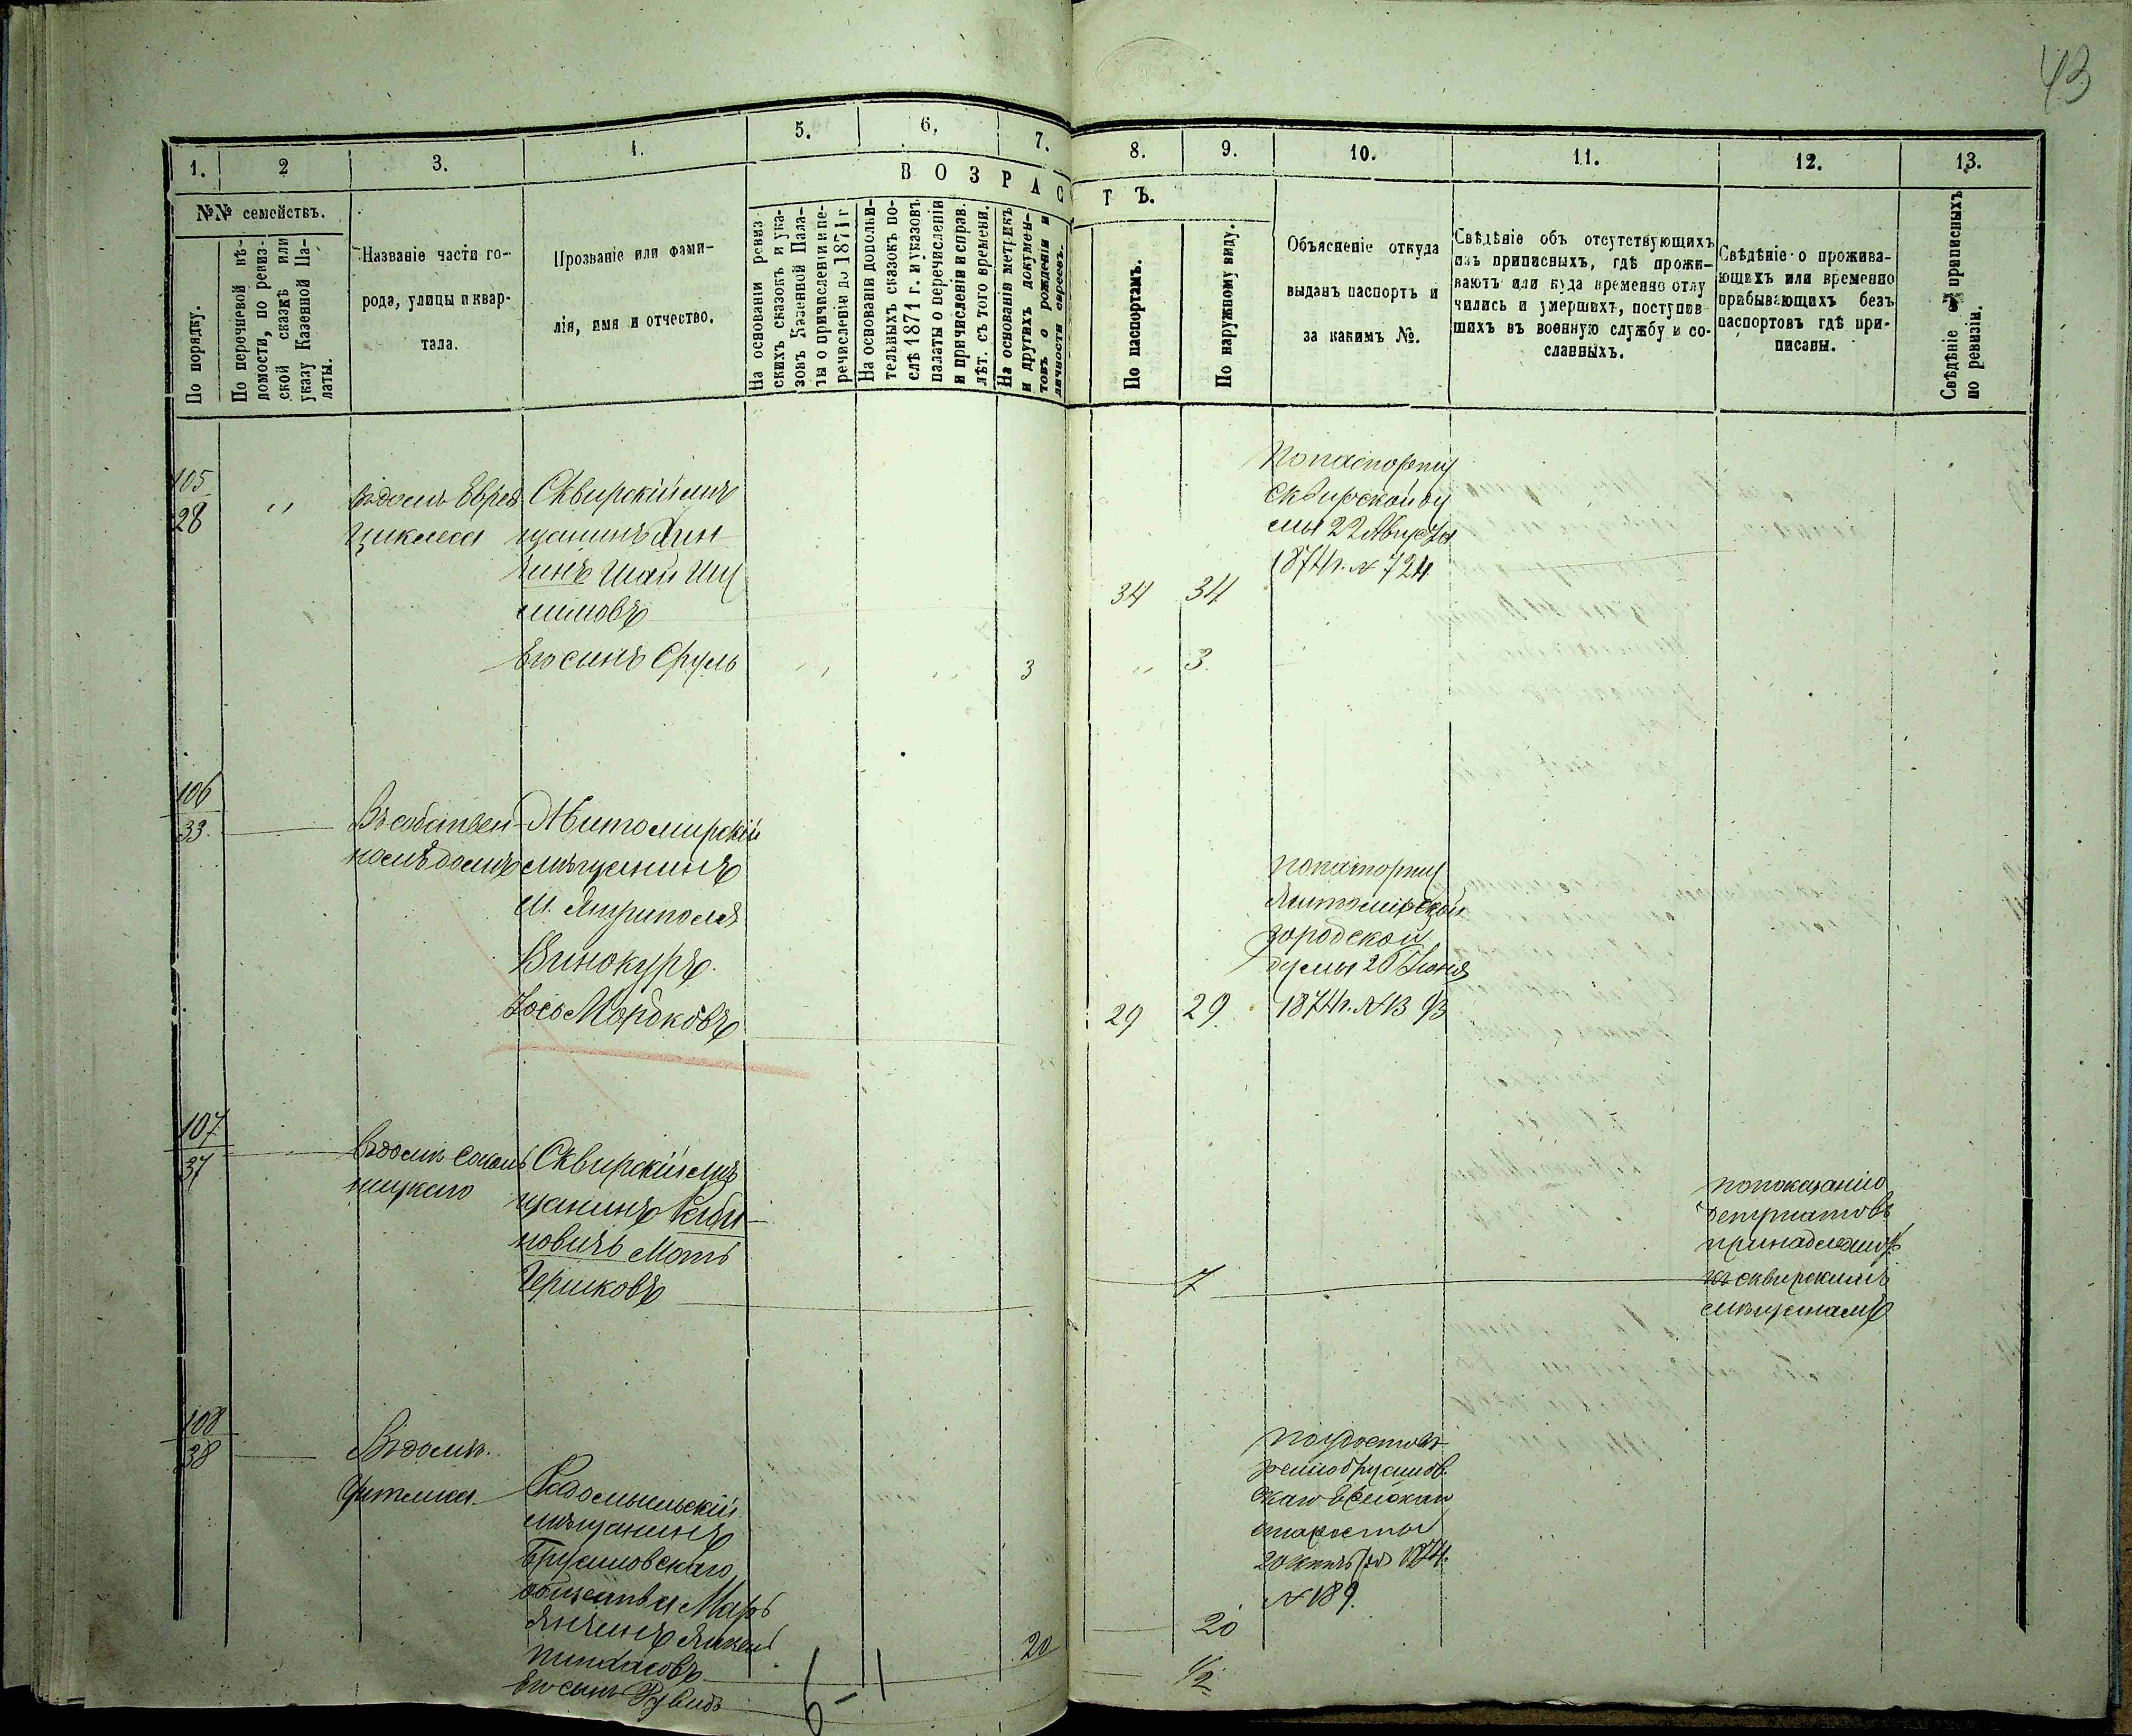 43
1.
2
3.
4.
5.
6.
7.
8.
9.
10.
11.
12.
13.
№№ семействъ.
По порядку.
По перечневой вѣ-
домости, по ревиз-
ской сказкѣ или
указу Казенной Па-
латы.
Названіе части го-
рода, улицы и квар-
тала.
Прозваніе или фами-
лія, имя и отчество.
ВОЗРАСТЪ.
На основаніи ревиз
скихъ сказокъ и ука-
зовъ Казенной Пала-
ты о причисленіи и пе-
речисленіи до 1871 г
На основаніи дополни-
тельныхъ сказокъ по-
слѣ 1871 г. и указовъ
палаты о перечисленіи
и причисленіи и справ.
лѣт. съ того времени.
На основаніи метрикъ
и другихъ докумен-
товъ о рожденіи и
личности евреевъ.
По паспортамъ.
По наружному виду.
Объясненіе откуда
выданъ паспортъ и
за какимъ №.
Свѣдѣніе объ отсутствующихъ
изъ приписныхъ, гдѣ прожи-
ваютъ или куда временно отлу
чились и умершихъ, поступив-
шихъ въ военную службу и со-
сланныхъ.
Свѣдѣніе о прожива-
ющихъ или временно
прибывающихъ безъ
паспортовъ гдѣ при-
писаны.
Свѣдѣніе о приписныхъ
по ревизіи.
105
28
Въ домѣ Еврея
Сквирскій мѣ
щанинъ
Шая Шу
лимовъ
34 34
По паспорту
Сквирской ду
мы 22 Августа
1874 г. № 724
Его сынъ Сруль
3
3
106
33
Въ собствен-
номъ домѣ
Житомирскій
мѣщанинъ
м.
Винокуръ
Йось Мордковъ
29 29
По паспорту
Житомирской
городской
думы 20 Іюня
1874 г. №
107
37
Въ домѣ
ницкаго
Сквирскій мѣ
щанинъ Раби-
новичъ Мотъ
Гершковъ
7
по показанію
депутатовъ
принадлежитъ
къ сквирскимъ
мѣщанамъ
108
38
Въ домѣ
Фителиса
Радомысльскій
мѣщанинъ
Брусиловскаго
общества
Пинхасовъ
20
20
По удостов
ренію Брусилов
скаго
старосты
1874.
№ 189.
Его сынъ Рувинъ
1/2
6-1